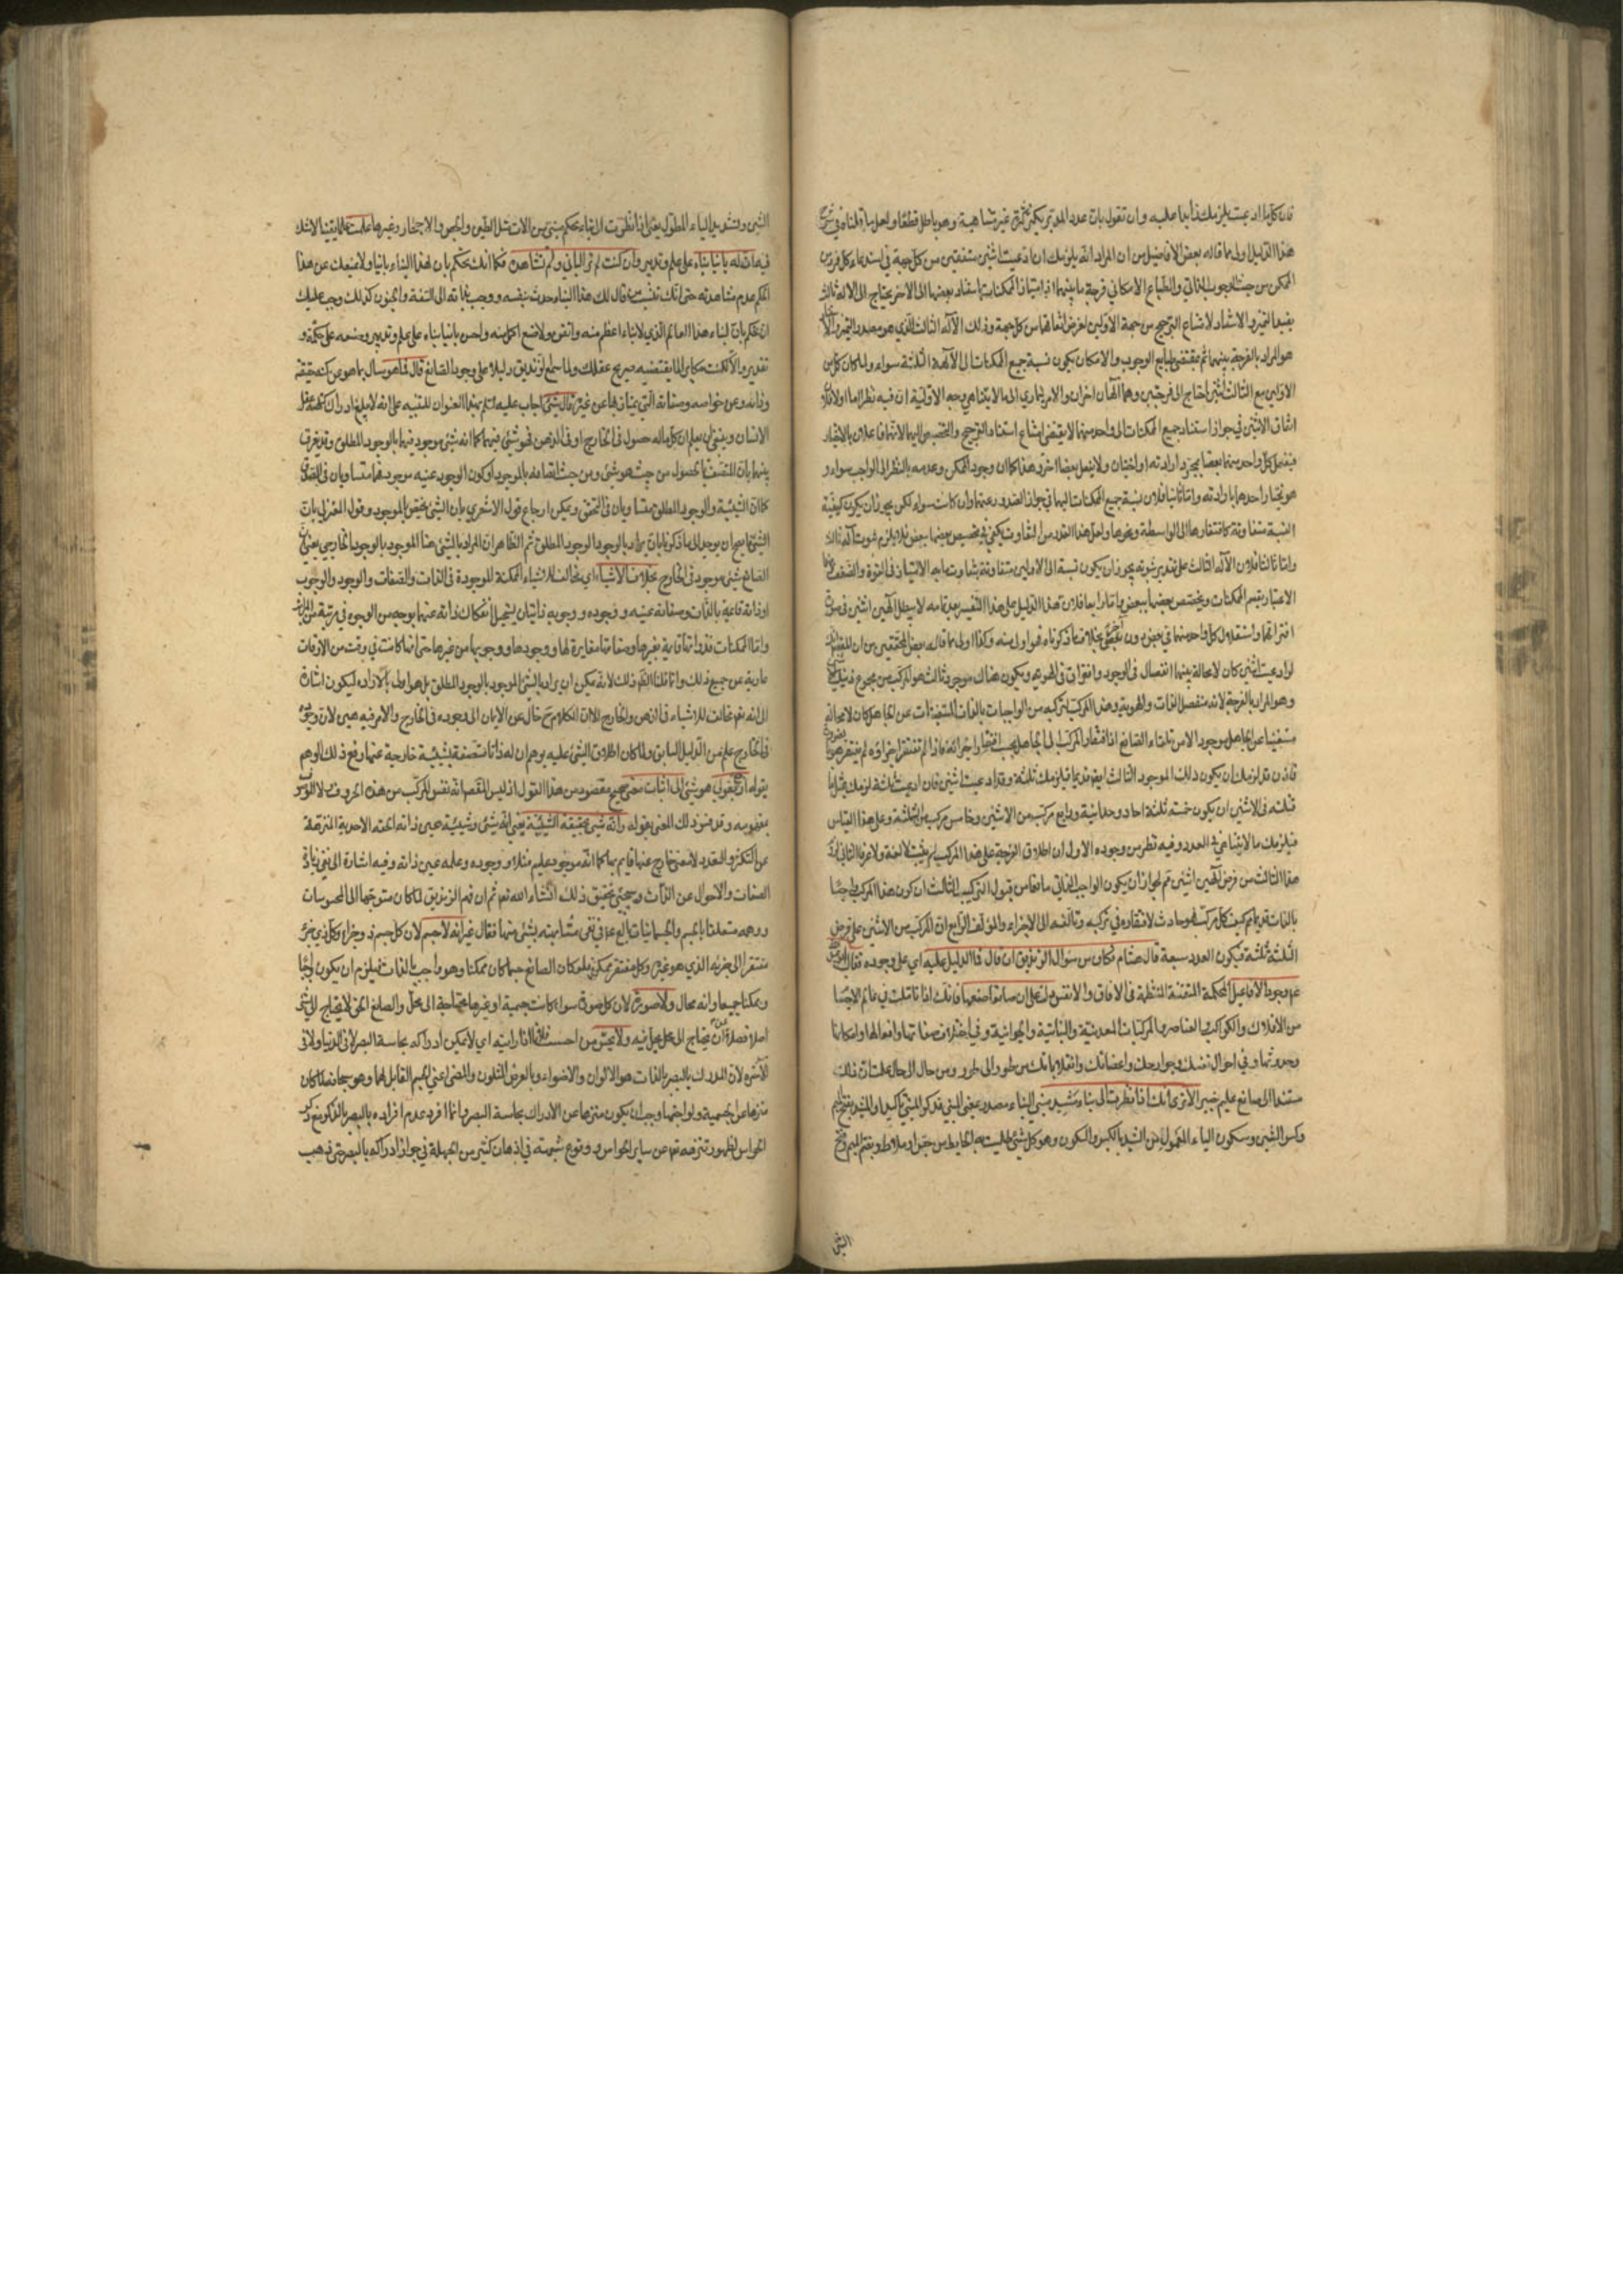 فان كلما ادعيت يلزمك ذاهبا عليه وان تقول بان عدد المؤثر يكثر كثرة غير متناهية وهو باطل قطعا ولعل ما قلنا في شرح
هذا الدليل اولى مما قاله بعض الافاضل من ان المراد انه يلزمك ان ادعيت اثنين متفقين من كل جهة في استدعاء كل فرد من
الممكن من حيث الوجوب الذاتي والطباع الامكاني فرجة ما بينهما اذ امتياز الممكنات بعضها الى الاخر يحتاج الى الاله ثالث
يفيد التميز والاستناد لامتناع الترجيح من جهة الاولين لفرض اتفاقهما من كل جهة وذلك الآله الثالث الذي هو مصدر التميز
هو المراد بالفرجة بينهما ثم مقتضى طبايع الوجوب والامكان يكون نسبة جميع الممكنات الى الآلهة الثلثة سواء ولما كان كل من
الاولين مع الثالث اثنين احتاج الى فرجتين وهما الهان اخران والامر متمادي الى ما لا يتناهى وجه الاولوية ان فيه نظر اما اولا فلان
اتفاق الاثنين في جواز استناد جميع الممكنات الى واحد منهما لا يقتضي امتناع استناد الترجيح والتخصيص اليهما لانهما فاعلان بالاختيار
فيفعل كل واحد منهما بعضا بمجرد ارادته واختيار ولا يفعل بعضا اخر وهذا كما ان وجود الممكن وعدمه بالنظر الى الواجب سواء و
هو يختار احدهما بارادته واما ثانيا فلان نسبة جميع الممكنات اليهما في جواز الصدور عنهما وان كانت سواء لكن يجوز ان يكون كيفية
النسبة متفاوتة كافتقارها الى الواسطة ونحوها ولعل هذا القدر من التفاوت يكفي في تخصيص بعضها ببعض فلا يلزم ثبوت آله ثالث
واما ثالثا فلان الآله الثالث على تقدير ثبوته يجوز ان يكون نسبة الى الاولين متفاوتة بتفاوت ما به الامتياز في القوة والضعف
الاعتبار يقسم الممكنات ويختص بعضها ببعض واما رابعا فلان هذا الدليل على هذا التفسير بعد تمامه لا يبطل آلهين اثنين في صورة
افتراقهما واستقلال كل واحد منهما في بعض دون بعض بخلاف ما ذكرناه فهو اولى منه وكذا اولى مما قاله بعض المحققين من ان
لو ادعيت اثنين كان لا محالة بينهما انفصال في الوجود وافتراق في الهوية ويكون هناك موجود ثالث هو المركب من مجموع
وهو المراد بالفرجة لانه منفصل الذات والهوية وهذا المركب لتركبه من الواجبات بالذات المستغنيات عن الجاعل كان لا محالة
مستغنيا عن الجاعل موجودا لا من تلقاء الصانع اذ افتقار المركب الى الجاعل بحسب افتقار اجزائه فاذا لم تفتقر اجزاؤه لم يفتقر هو
فاذن قد لزمك ان يكون ذلك الموجود الثالث ايضا قديما فيلزمك ثلثة وقد ادعيت اثنين فان ادعيت ثلثة لزمك مثل ما
قلته في الاثنين ان يكون خمسة ثلثة احاد وحدانية ورابع مركب من الاثنين وخامس مركب من الثلثة وعلى هذا القياس
فيلزمك ما لا يتناهى في العدد وفيه نظر من وجوه الاول ان اطلاق الفرجة على هذا المركب لم يثبت لا لغة ولا عرفا الثاني
هذا الثالث من فرض آلهين اثنين ثم لجواز ان يكون الواجب الذاتي مانعا من قبول التركيب الثالث ان كون هذا المركب واجبا
بالذات قديما ثم كيف وكل مركب فهو حادث لافتقاره في تركبه وتألفه الى الاجزاء والمؤلف الرابع ان المركب من الاثنين على فرض
الثلثة ثلثة فيكون العدد سبعة قال هشام فكان من سؤال الزنديق ان قال فما الدليل عليه اي على وجوده فقال
ع وجود الافاعيل المحكمة المتقنة المنتظمة في الافاق والانفس دلت على ان صانعا صنعها فانك اذا تاملت في عالم الاجسام
من الافلاك والكواكب والعناصر والمركبات المعدنية والنباتية والحيوانية وفي اختلاف صفاتها وافعالها وامكانها
وحدوثها وفي احوال نفسك وجوارحك واعضائك وانقلاباتك من طور الى طور ومن حال الى حال علمت ان ذلك
مستند الى صانع عليم خبير الا ترى انك اذا نظرت الى بناء مشيد مبني البناء مصدر بمعنى المبني فذكر المبني تاكيد والمشيد بفتح الميم
وكسر الشين وسكون الياء المعمول من الشيد بالكسر والسكون وهو كل شيء طليت به الحايط من جص او ملاط وبضم الميم وفتح
الشين
الشين وتشديد الياء المطول يعني اذا نظرت الى بناء محكم مبني من الات مثل الطين والجص والاحجار وغيرها علمت علما يقينيا لا شك
فيه ان له بانيا بناه على علم وتدبير وان كنت لم تر الباني ولم تشاهده فكما انك تحكم بان لهذا البناء بانيا ولا يمنعك عن هذا
الحكم عدم مشاهدته حتى انك تنسب من قال لك هذا البناء حدث بنفسه ووجب بذاته الى السفه والجنون كذلك وجب عليك
ان تحكم بان لبناء هذا العالم الذي لا بناء اعظم منه واتقن ولا صنع اكمل منه واحسن بانيا بناه على علم وتدبير وصنعه على حكمة و
تقدير والا لكنت مكابرا لما يقتضيه صريح عقلك ولما سمع الزنديق دليلا على وجود الصانع قال فما هو سأل بما هو عن كنه حقيقة
وذاته وعن خواصه وصفاته التي يمتاز بها عن غيره قال شيء اجاب عليه السلم بهذا العنوان للتنبيه على انه لا يبلغ ادراك كنهه عقل
الانسان وينبغي ان يعلم ان كل ماله حصول في الخارج او في الذهن فهو شيء فيهما كما انه شيء موجود فيهما بالوجود المطلق وقد يفرق
بينهما بان المتصف بالحصول من حيث هو شيء ومن حيث اتصافه بالموجود او كون الوجود عينه موجود فهما متساويان في الصدق
كما ان الشيئية والوجود المطلق متساويان في التحقق ويمكن ارجاع قول الاشعري بان الشيء يختص بالموجود وقول المعتزلي بان
الشيء ما يصح ان يوجد الى ما ذكرنا بان يراد بالوجود الوجود المطلق ثم الظاهر ان المراد بالشيء هنا الموجود بالوجود الخارجي يعني
الصانع شيء موجود في الخارج بخلاف الاشياء اي مخالف للاشياء الممكنة الموجودة في الذات والصفات والوجود والوجوب
اذ ذاته قائمة بالذات وصفاته عينه ووجوده ووجوبه ذاتيان يستحيل انفكاك ذاته عنهما بوجه من الوجوه في مرتبة من المراتب
واما الممكنات فذواتها قايمة بغيرها وصفاتها مغايرة لها ووجودها ووجوبها من غيرها حتى انها كانت في وقت من الاوقات
عارية عن جميع ذلك وانما قلنا الظاهر ذلك لانه يمكن ان يراد بالشيء الموجود بالوجود المطلق بل هو اولى بالارادة ليكون اشارة
الى انه تعالى مخالف للاشياء في الذهن والخارج الا ان الكلام ح خال عن الايماء الى وجوده في الخارج والامر فيه هين لان وجوده
في الخارج علم من الدليل السابق ولما كان اطلاق الشيء عليه يوهم ان له ذاتا متصفة بشيئية خارجة عنها رفع ذلك الوهم
بقوله ارجع بقولي هو شيء الى اثبات معنى صحيح مقصود من هذا القول اذ ليس المقصد انه نفس المركب من هذه الحروف
بمفهومه وقد فسر ذلك المعنى بقوله وانه شيء بحقيقة الشيئية يعني انه شيء وشيئيته عين ذاته الحقة الاحدية المنزهة
عن التكثر والتعدد لا معنى خارج عنها قايم بها كما انه موجود عليم مثلا ووجوده وعلمه عين ذاته وفيه اشارة الى نفي زيادة
الصفات والاحوال عن الذات وسيجيء تحقيق ذلك انشاء الله تعالى ثم ان فهم الزنديق لما كان متوجها الى المحسوسات
ووهمه متعلقا بالجسم والجسمانيات بالغ ع في نفي مشابهته بشيء منها فقال غير انه لا جسم لان كل جسم ذو جزء وكل ذي جزء
مفتقر الى جزئه الذي هو غيره وكل مفتقر ممكن فلو كان الصانع جسما كان ممكنا وهو واجب بالذات فيلزم ان يكون واجبا
وممكنا جميعا وانه محال ولا صورة لان كل صورة سواء كانت جسمية او غيرها محتاجة الى محل والصانع الحق لا يحتاج الى شيء
اصلا فضلا عن ان يحتاج الى محل يحل فيه ولا يحس من احسست الشيء اذا رايته اي لا يمكن ادراكه بحاسة البصر لا في الدنيا ولا في
الآخرة لان المدرك بالبصر بالذات هو الالوان والاضواء وبالعرض المتلون والمضيء اعني الجسم القابل لهما وهو سبحانه لما كان
منزها عن الجسمية ولواحقها وجب ان يكون منزها عن الادراك بحاسة البصر وانما افرد عدم ادراكه بالبصر بالذكر مع ذكر
الحواس لظهور تنزهه تعالى عن ساير الحواس ووقوع شبهة في اذهان كثير من الجهلة في جواز ادراكه بالبصر حتى ذهب